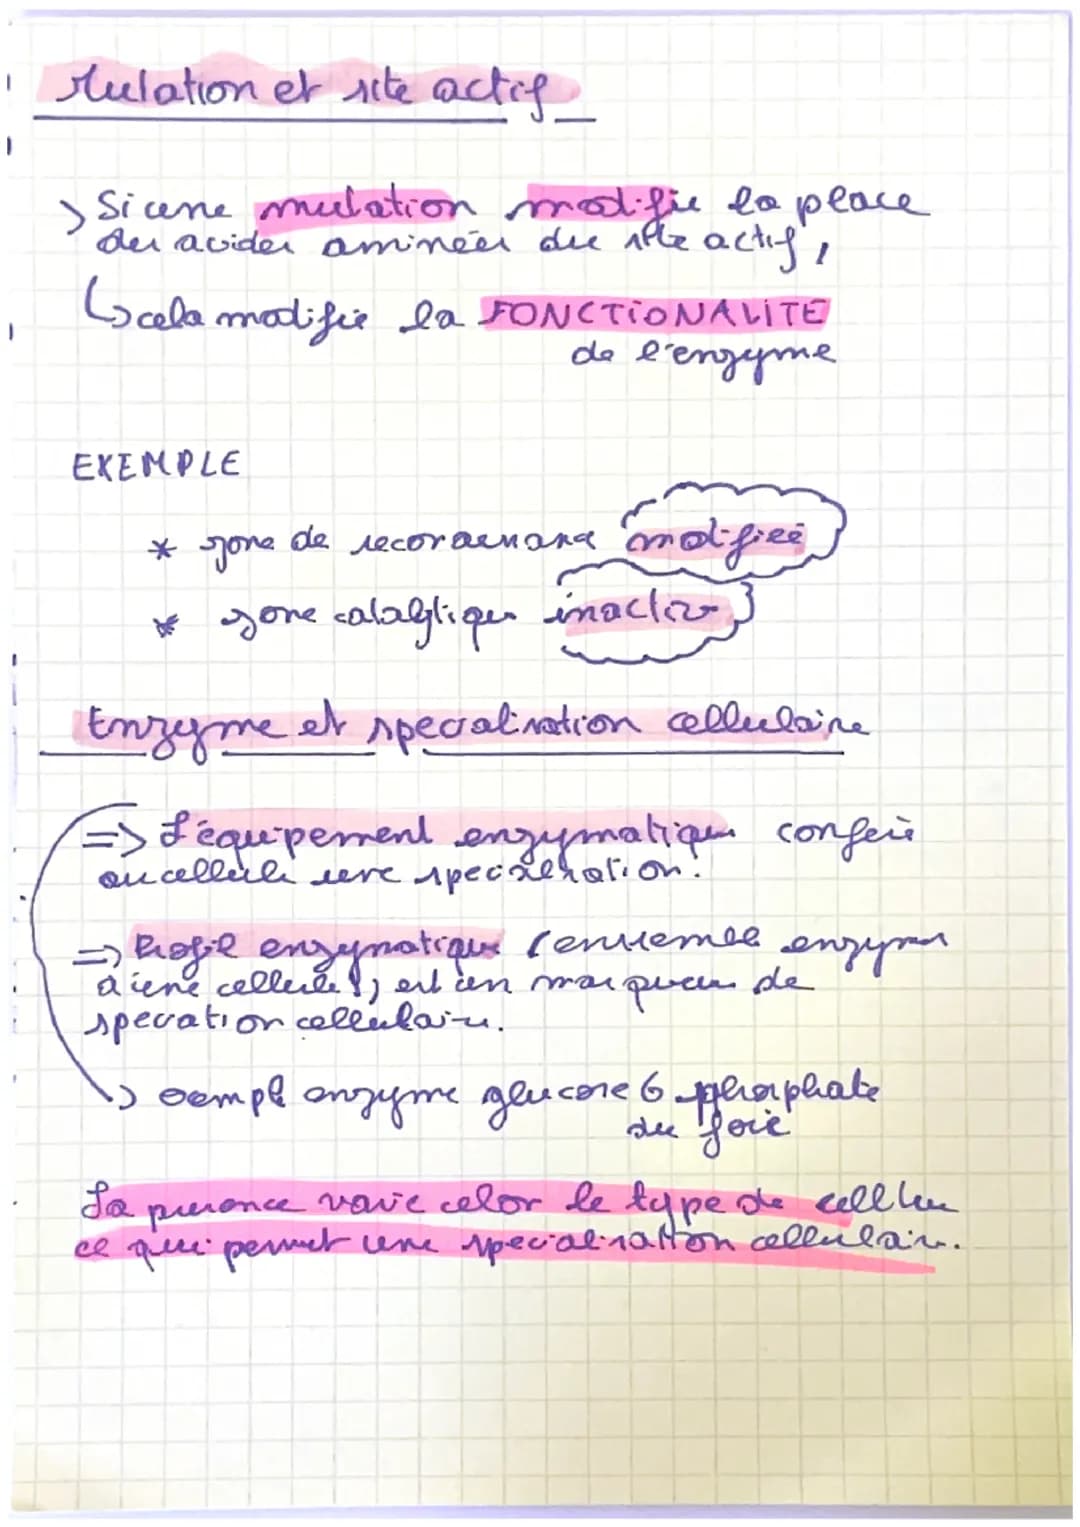 Mutation et site actif
> Si une mutation modifie la place
des acides aminées du site actif,
↳ cela modifie la FONCTIONALITE
de l'enzyme
EXEMPLE
* zone de reconaenance modifiée
* zone catalytique inactive
Enzyme et specalisation cellulaire
=> L'équipement enzymatique confère
au cellule une specialisation.
=> Profil enzymatique (ensemble enzymes
d'une cellule), est un marqueur de
specation cellulaire.
-> exemple enzyme glucose 6 phosphate
du foie
La présence varie celon le type de cellule
ce qui permet une specialisation cellulaire.